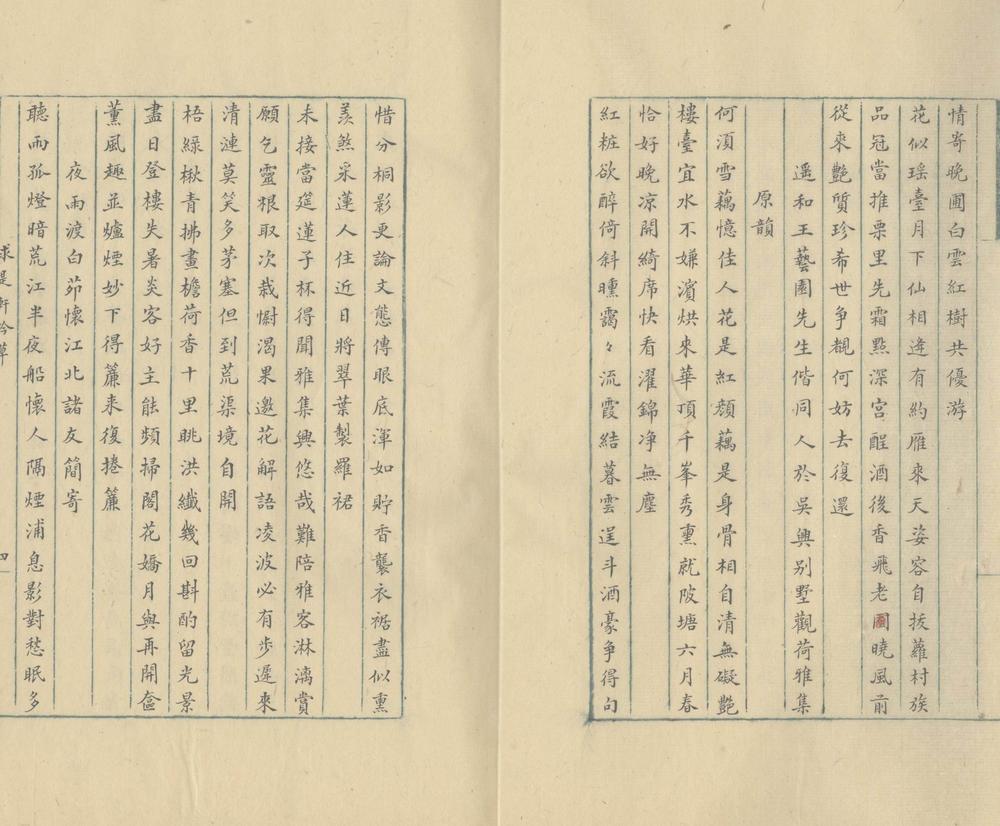 情寄晚圃白雲紅樹共優游
花似瑶臺月下仙相逢有約雁來天姿容自拔蘿村族
品冠當推栗里先霜點深宮酲酒後香飛老圃曉風前
從來艷質珍希世争覩何妨去復還
遥和王藝園先生偕同人於吳興别墅觀荷雅集
原韻
何湏雪藕憶佳人花是紅顔藕是身骨相自清無礙艷
樓臺宜水不嫌濱烘來華頂千峯秀熏就陂塘六月春
恰好晚凉開綺席快看濯錦净無塵
紅粧欲醉倚斜曛靄々流霞結暮雲逞斗酒豪争得句
惜分桐影更論文態傳眼底渾如貯香襲衣裾盡似熏
羨煞采蓮人住近日將翠葉製羅裙
未接當筵蓮子杯得聞雅集興悠哉難陪雅客淋漓賞
願乞靈根取次栽慰渴果邀花解語凌波必有步遲來
清漣莫笑多茅塞但到荒渠境自開
梧綠楸青拂畫檐荷香十里眺洪纖幾回斟酌留光景
盡日登樓失暑炎客好主能頻掃閣花嬌月與再開奩
薰風趣並爐煙妙下得簾来復捲簾
夜雨渡白茆懷江北諸友簡寄
聽雨孤燈暗荒江半夜船懷人隔煙浦息影對愁眠多
求是軒吟草
四